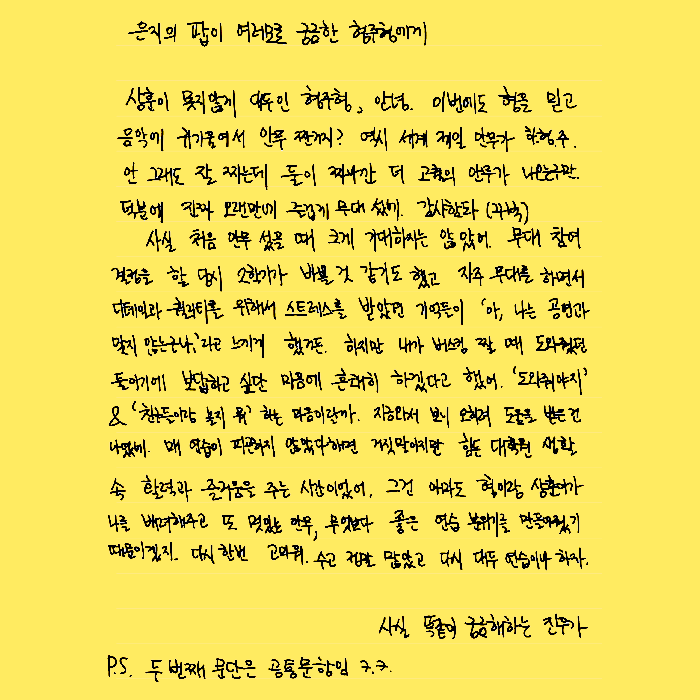 은지의 팝이 여러모로 궁금한 형주형에게
상훈이 못지않게 대두인 형주형, 안녕. 이번에도 형을 믿고
음악에 귀기울여서 안무 짠거지? 역시 세계 제일 안무가 학형주.
안 그래도 잘 짜는데 둘이 짜니깐 더 고퀄의 안무가 나오는구만.
덕분에 진짜 오랜만에 즐겁게 무대 섰어. 감사합니다 (꾸벅)
사실 처음 안무 섰을 때 크게 기대하지는 않았어. 무대 참여
결정을 할 당시 2학기가 바쁠 것 같기도 했고 자주 무대를 하면서
디테일과 퀄리티를 위해서 스트레스를 받았던 기억들이 '아, 나는 공연과
맞지 않는구나,'라고 느끼게 했거든. 하지만 내가 버스킹 짤 때 도와줬던
둘이기에 보답하고 싶단 마음에 흔쾌히 하겠다고 했어. '도와줘야지'
& '친구들이랑 놀지 뭐' 하는 마음이랄까. 지나와서 보니 오히려 도움을 받은건
나였어. 매 연습이 피곤하지 않았다하면 거짓말이지만 힘든 대학원 생활
속 활력과 즐거움을 주는 시간이었어. 그건 아마도 형이랑 상훈이가
나를 배려해주고 또 멋있는 안무, 무엇보다 좋은 연습 분위기를 만들어줬기
때문이겠지. 다시 한번 고마워. 수고 정말 많았고 다시 대두 연습이나 하자.
사실 똑같이 궁금해하는 진우가
P.S. 두번째 문단은 공통문항임 ㅋ.ㅋ.